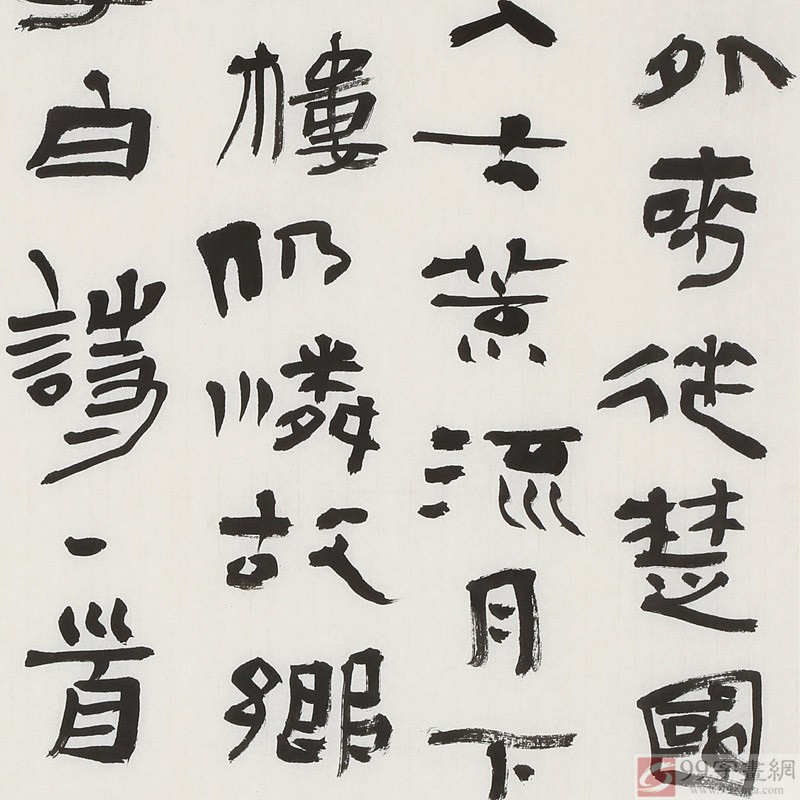 外來從楚國
入大荒流月下
樓仍憐故鄉
白詩一首
99字畫網